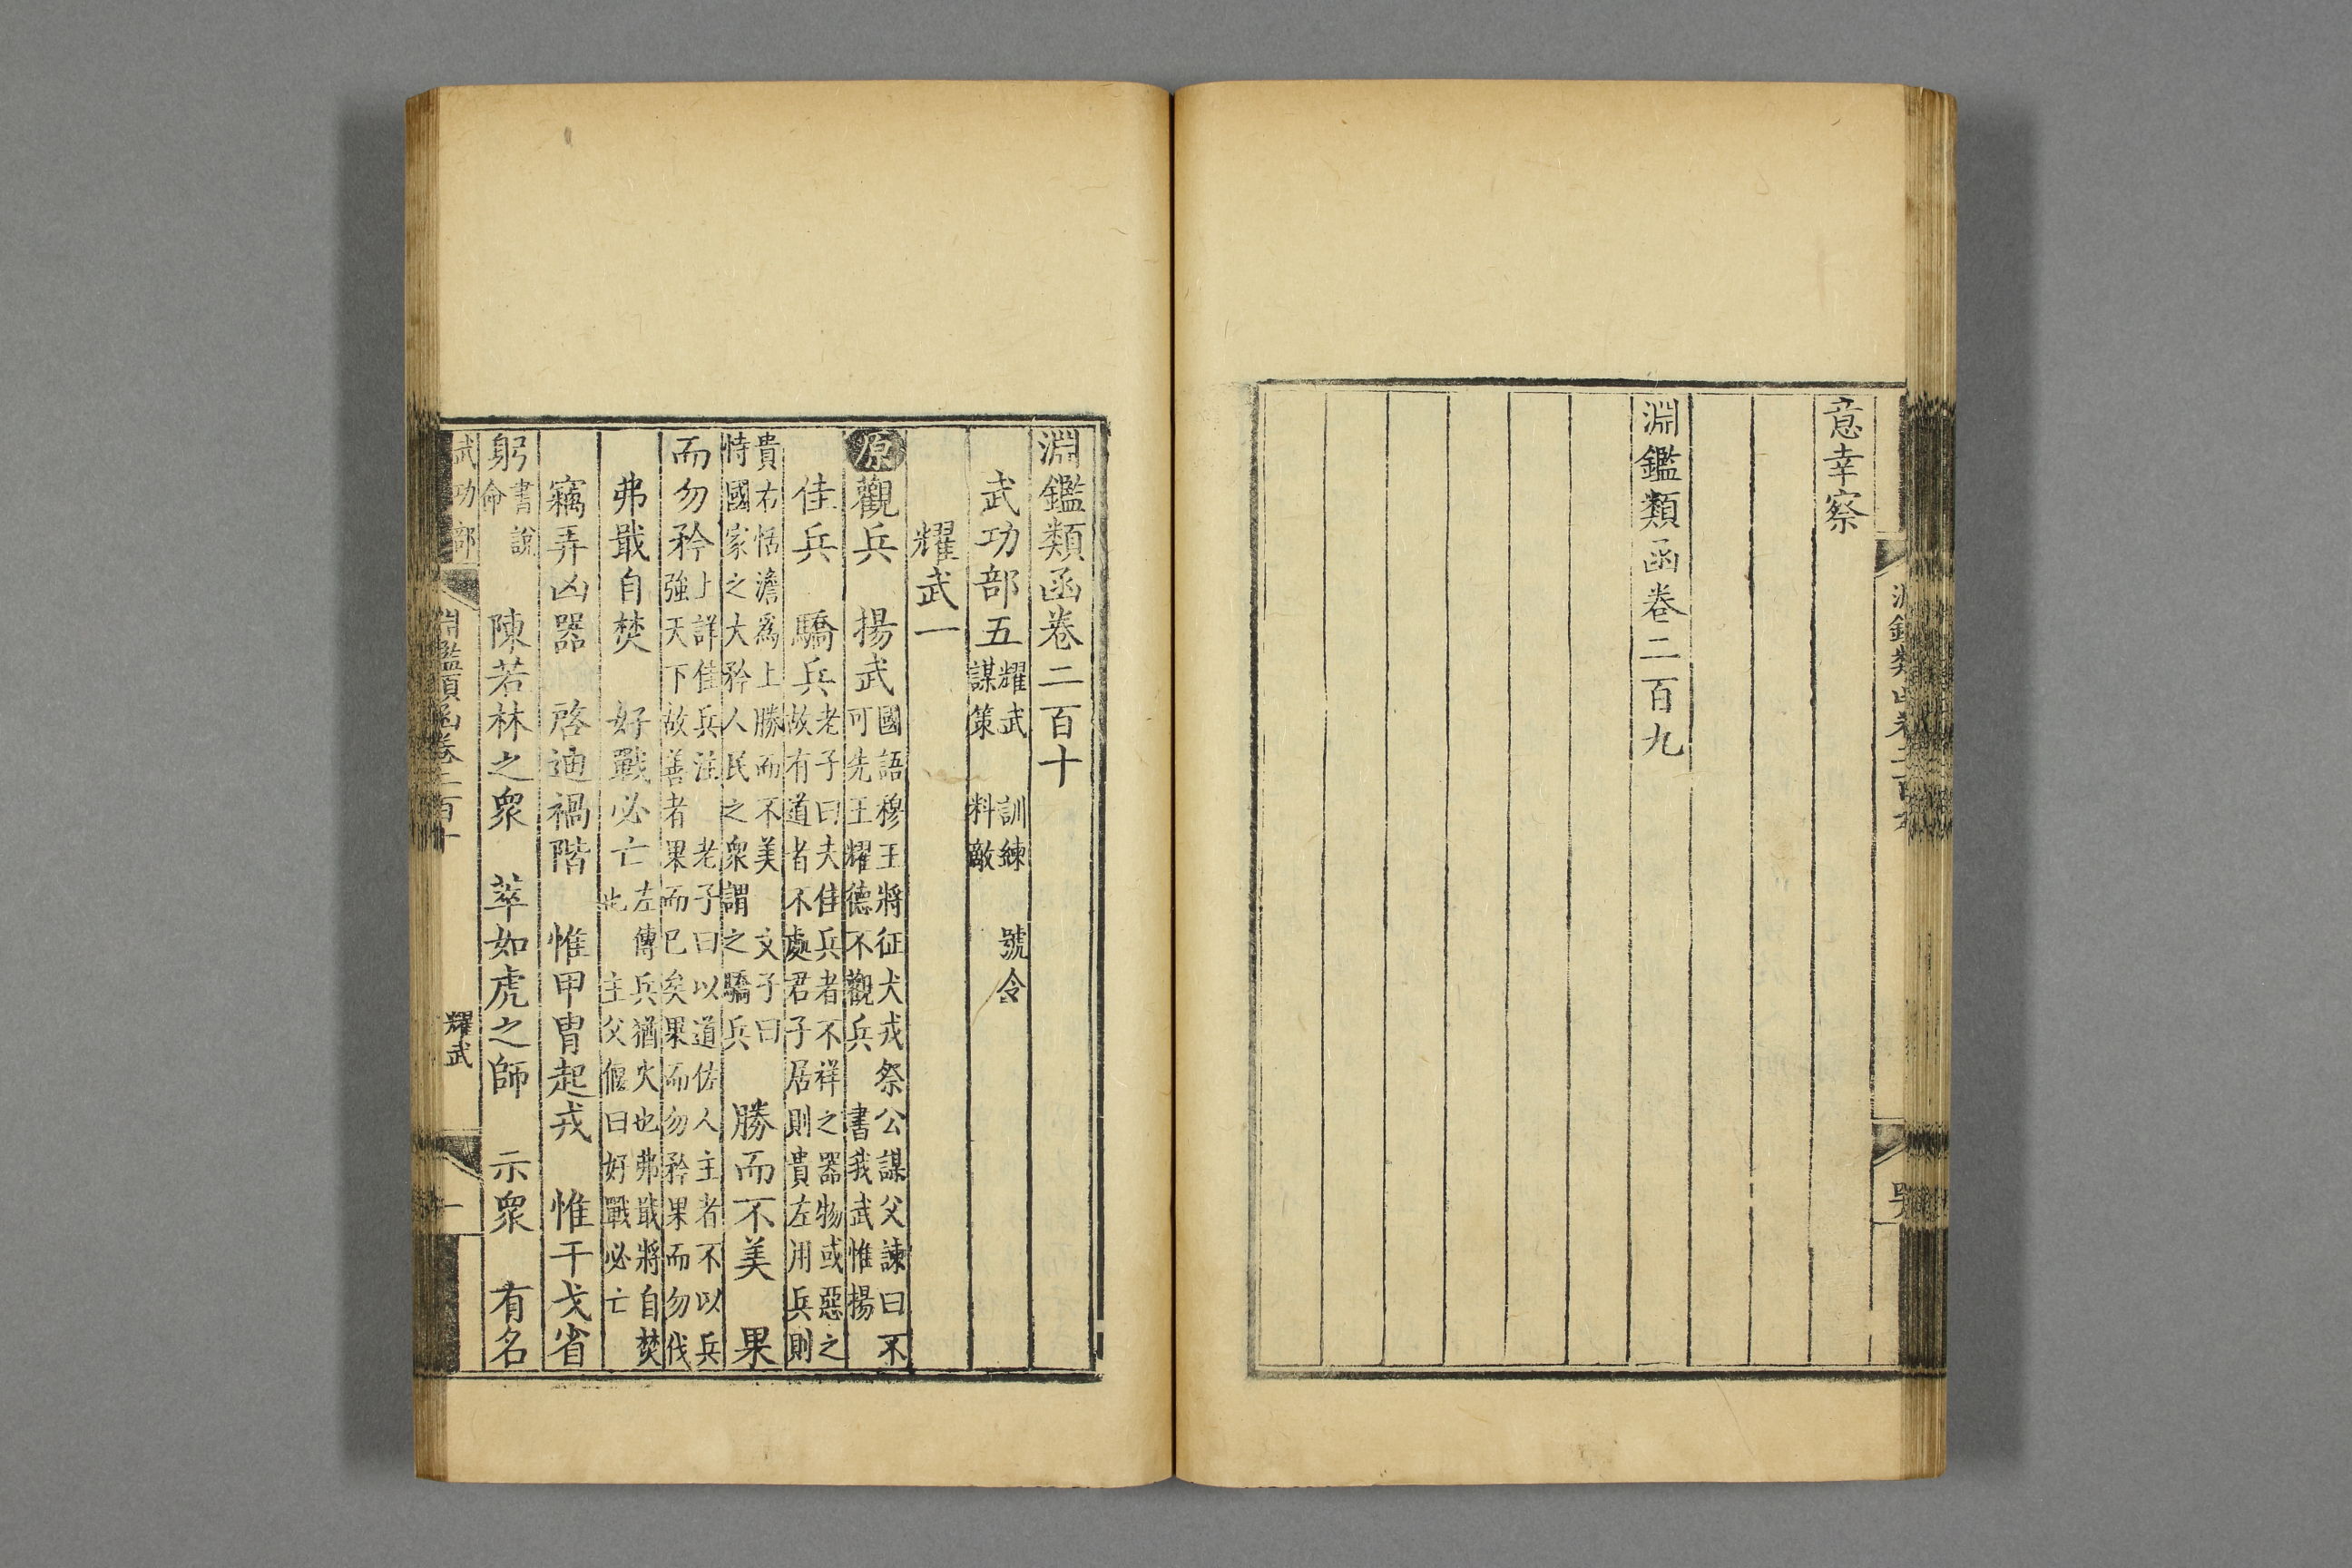 意幸察
淵鑑類函卷二百九
淵鑑類函卷二百十
武功部五 耀武 訓練 號令 謀策 料敵
耀武一
原 觀兵 揚武 國語穆王將征犬戎祭公謀父諫曰不可先王耀德不觀兵 書我武惟揚
佳兵 驕兵 老子曰夫佳兵者不祥之器物或惡之故有道者不處君子居則貴左用兵則
貴右恬澹爲上勝而不美 文子曰恃國家之大矜人民之衆謂之驕兵 勝而不美 果
而勿矜 上詳佳兵注 老子曰以道佐人主者不以兵強天下故善者果而已矣果而勿矜果而勿伐
弗戢自焚 好戰必亡 左傳兵猶火也弗戢將自焚也 主父偃曰好戰必亡
竊弄凶器 啓迪禍階 惟甲冑起戎 惟干戈省
躬 書說命 陳若林之衆 萃如虎之師 示衆 有名
武功部 淵鑑類函卷二百十 耀武 一